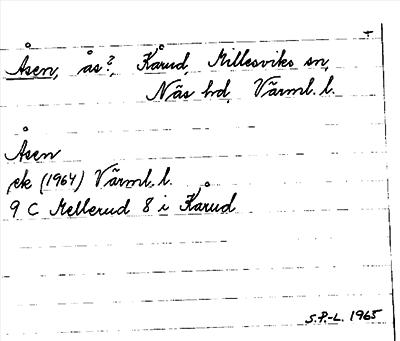 Åsen, ås?, Kårud, Millesviks sn,
Näs hd, Värml. l.
Åsen
ek (1964) Värml. l.
9 C Mellerud 8 i Kårud
S.P.-L. 1965